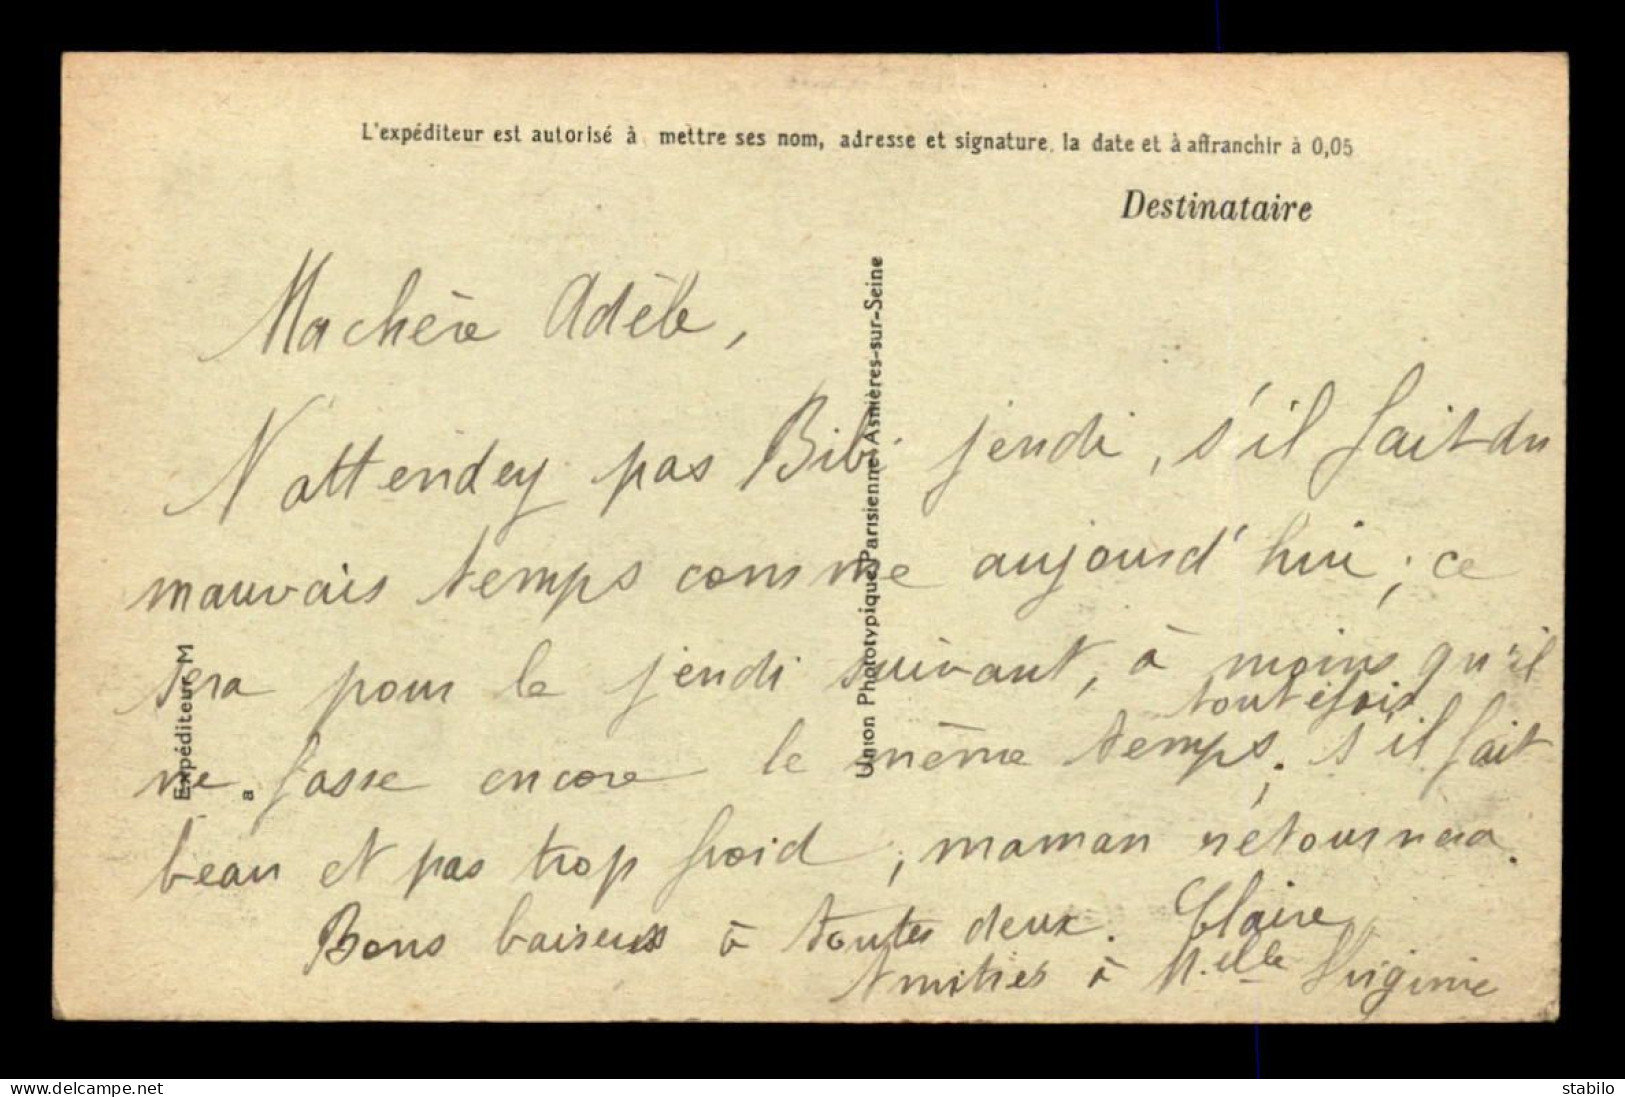 L'expéditeur est autorisé à mettre ses nom, adresse et signature, la date et à affranchir à 0,05
Destinataire
Ma chère Adèle,
N'attendez pas Bibi jeudi, s'il fait du
mauvais temps comme aujourd'hui ; ce
sera pour le jeudi suivant, à moins qu'il
toutefois
ne fasse encore le même temps. s'il fait
beau et pas trop froid, maman retournera.
Bons baisers à toutes deux. Claire
Amitiés à Melle Virginie
Union Phototypique Parisienne Asnières-sur-Seine
Expéditeur M
a
delcampe.net
stabilo